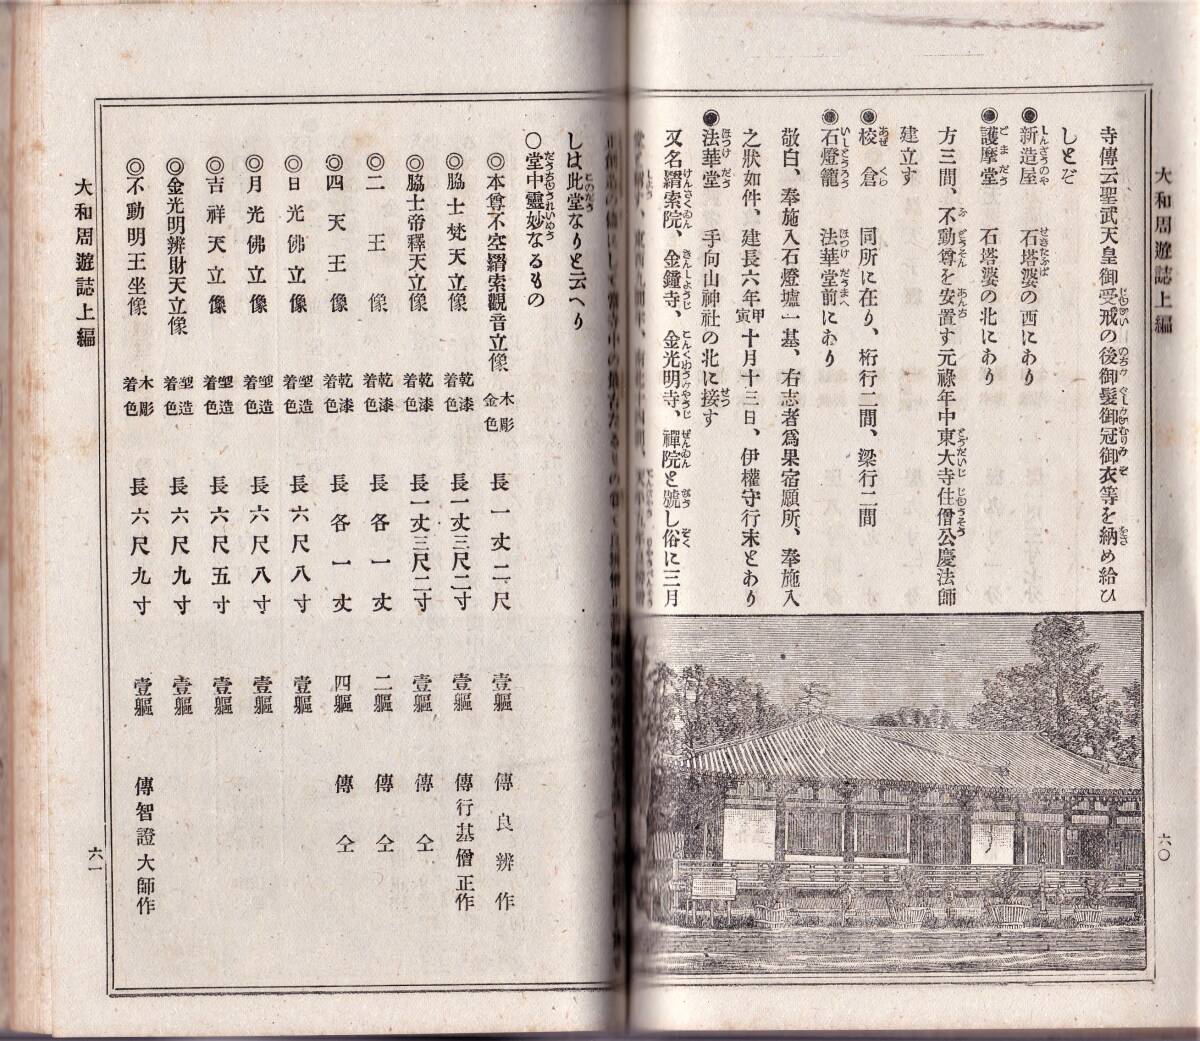 大和周遊誌上編
寺傳云聖武天皇御受戒の後御髮御冠御衣等を納め給ひ
しとぞ
◉新造屋 石塔婆の西にあり
◉護摩堂 石塔婆の北にあり
方三間、不動尊を安置す元祿年中東大寺仕僧公慶法師
建立す
◉校倉 同所に在り、桁行二間、梁行二間
◉石燈籠 法華堂前にあり
敬白、奉施入石燈爐一基、右志者爲果宿願所、奉施入
之狀如件、建長六年甲寅十月十三日、伊權守行末とあり
◉法華堂 手向山神社の北に接す
又名羂索院、金鐘寺、金光明寺、禪院と號し俗に三月
六〇
しは此堂なりと云へり
〇堂中靈妙なるもの
◎本尊不空羂索觀音立像 木彫金色 長一丈二尺 壹軀 傳良辨作
◎脇士梵天立像 乾漆着色 長一丈三尺二寸 壹軀 傳行基僧正作
◎脇士帝釋天立像 乾漆着色 長一丈三尺二寸 壹軀 傳仝
◎二王像 乾漆着色 長各一丈 二軀 傳仝
◎四天王像 乾漆着色 長各一丈 四軀 傳仝
◎日光佛立像 塑造着色 長六尺八寸 壹軀
◎月光佛立像 塑造着色 長六尺八寸 壹軀
◎吉祥天立像 塑造着色 長六尺五寸 壹軀
◎金光明辨財天立像 塑造着色 長六尺九寸 壹軀
◎不動明王坐像 木彫着色 長六尺九寸 壹軀 傳智證大師作
大和周遊誌上編
六一